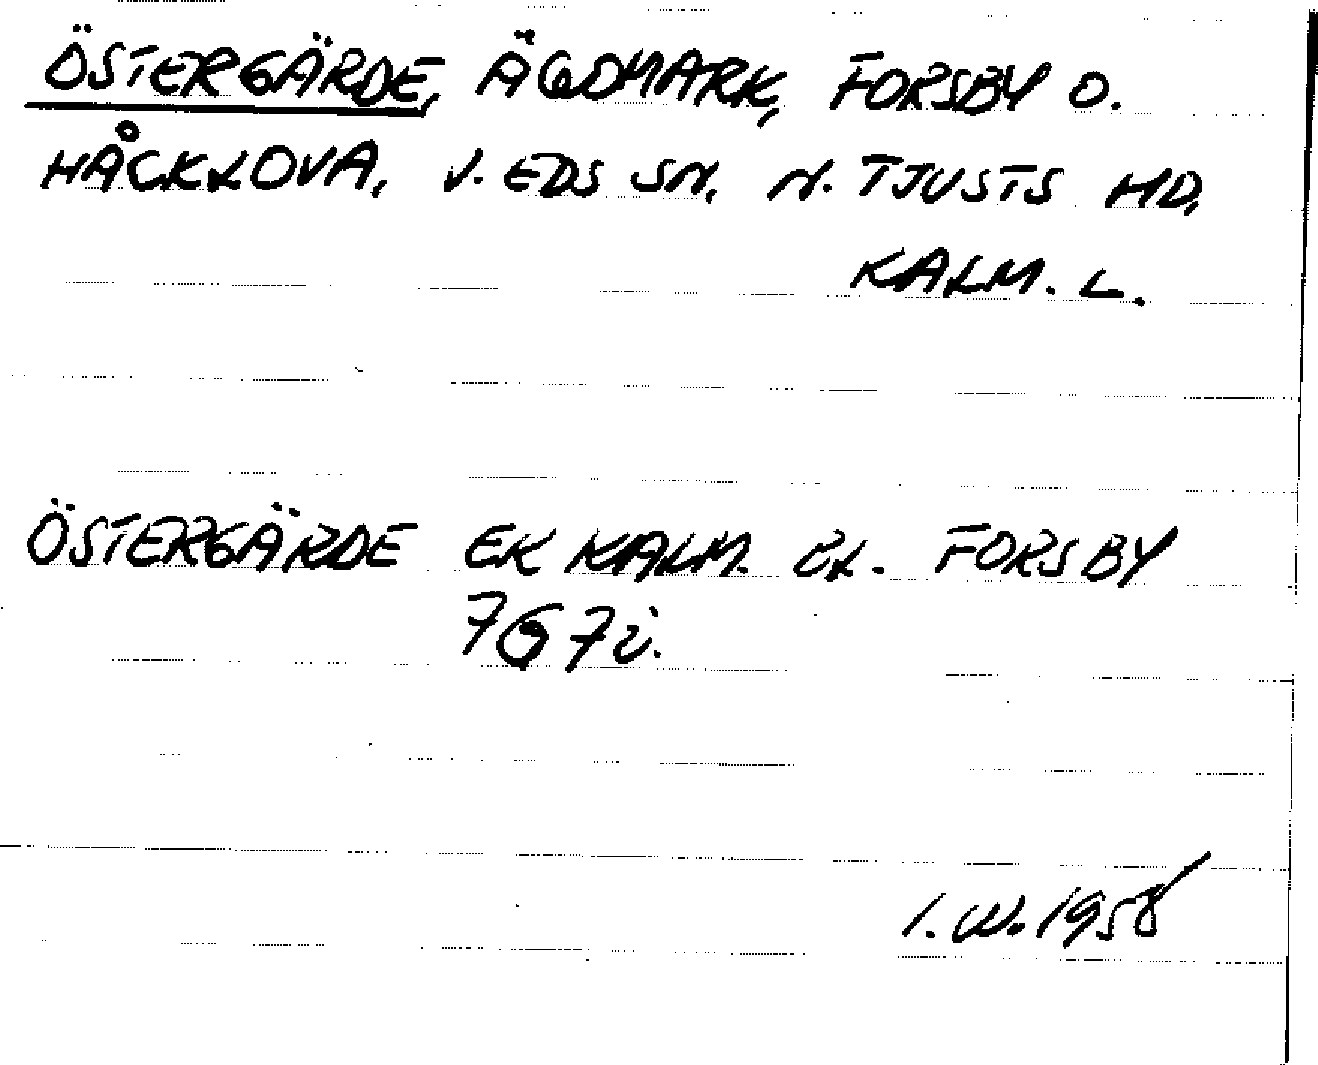 ÖSTERGÄRDE, ÄGOMARK, FORSBY O.
HÅCKLOVA, V. EDS SN, N. TJUSTS HD,
KALM. L.
ÖSTERGÄRDE EK KALM. BL. FORSBY
7G7i.
I.W. 1958